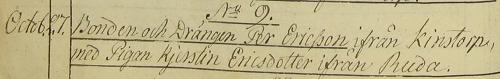 N:o 9.
Octob. 27. Bonden och Drängen Pär Ericsson ifrån Kinstorp,
med Pigan Kjerstin Ericsdotter ifrån Ruda.